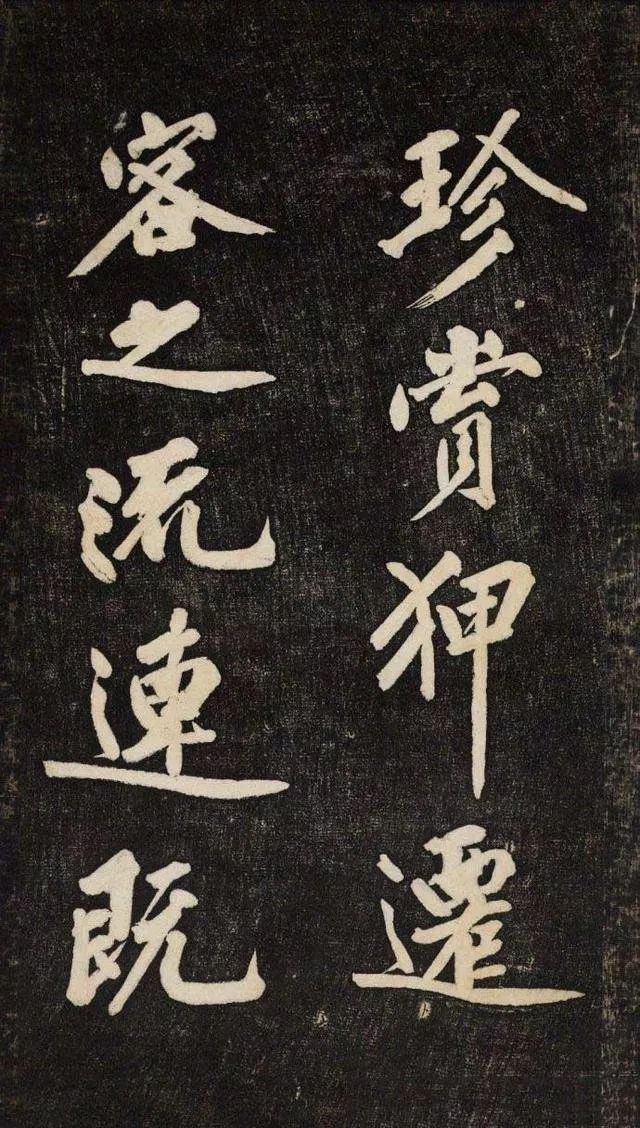 珍賞狎遷
客之流連既